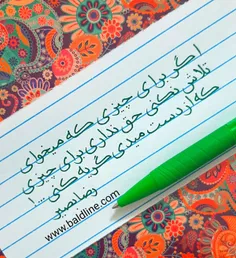 اگر برای چیزی که میخوای
تلاش نکنی حق نداری برای چیزی
که از دست میدی گریه کنی...!
رضا نصیر
www.baldline.com